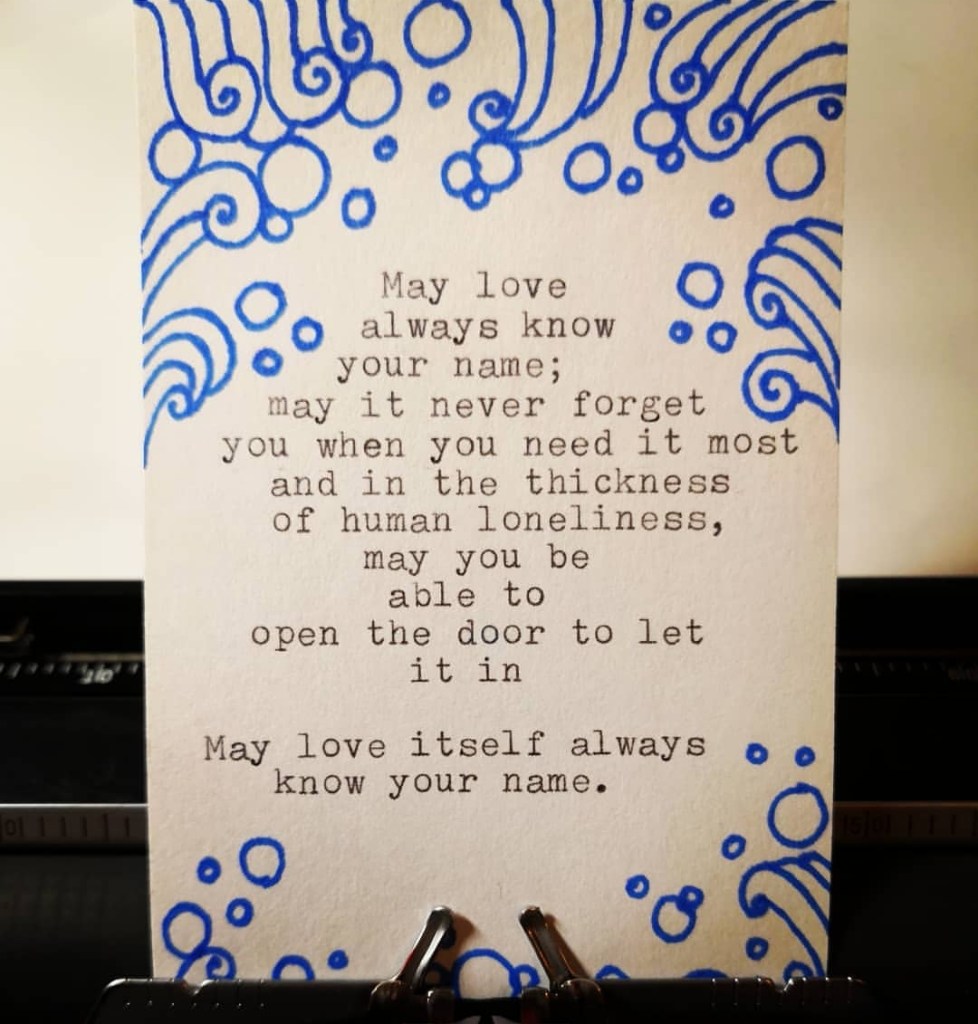 May love
always know
your name;
may it never forget
you when you need it most
and in the thickness
of human loneliness,
may you be
able to
open the door to let
it in
May love itself always
know your name.